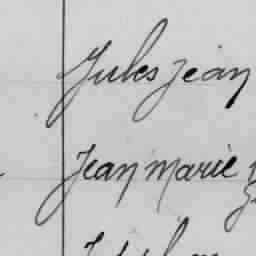 Jules Jean
Jean Marie